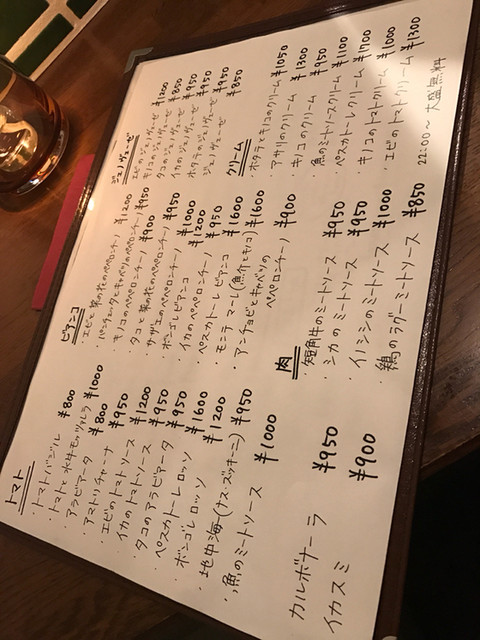 トマト
・トマトバジル ¥800
・トマトと水牛モッツァレラ ¥1000
・アラビアータ ¥800
・アマトリチャーナ ¥950
・エビのトマトソース ¥1200
・イカのトマトソース ¥950
・タコのアラビアータ ¥950
・ペスカトーレロッソ ¥1600
・ボンゴレロッソ ¥1200
・地中海(ナス・ズッキーニ) ¥950
・魚のミートソース ¥1000
カルボナーラ ¥950
イカスミ ¥900
ビアンコ
・エビと菜の花のペペロンチーノ ¥1200
・パンチェッタとキャベツのペペロンチーノ ¥950
・キノコのペペロンチーノ ¥900
・タコと菜の花のペペロンチーノ ¥950
・サザエのペペロンチーノ ¥1000
・ボンゴレビアンコ ¥1200
・イカのペペロンチーノ ¥950
・ペスカトーレビアンコ ¥1600
・モンテマーレ(魚介とキノコ) ¥1600
・アンチョビとキャベツの
ペペロンチーノ ¥900
肉
・短角牛のミートソース ¥950
・シカのミートソース ¥950
・イノシシのミートソース ¥1000
・鶏のラグーミートソース ¥850
ジェノヴェーゼ
エビのジェノヴェーゼ ¥1200
キノコのジェノヴェーゼ ¥850
タコのジェノヴェーゼ ¥950
イカのジェノヴェーゼ ¥950
ホタテのジェノヴェーゼ ¥950
クリーム ¥850
・ホタテとキノコのクリーム ¥1050
・アサリのクリーム ¥1300
・キノコのクリーム ¥950
・魚のミートソースクリーム ¥1100
・ペスカトーレクリーム ¥1700
・キノコのトマトクリーム ¥1000
・エビのトマトクリーム ¥1300
22:00〜 大盛無料